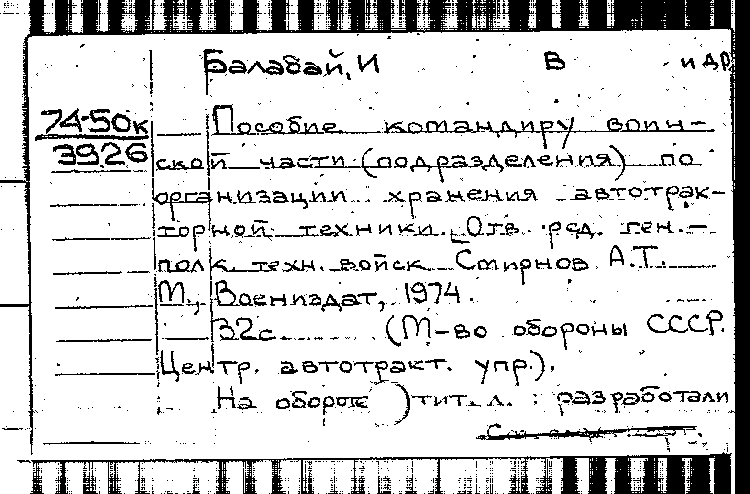 Балабай, И В и др
74-50к
3926
Пособие командиру воин-
ской части (подразделения) по
организации хранения автотрак-
торной техники. Отв. ред. ген.-
полк. техн. войск Смирнов А.Т.
М., Воениздат, 1974.
32с. (М-во обороны СССР.
Центр. автотракт. упр.).
На обороте тит. л. : разработали